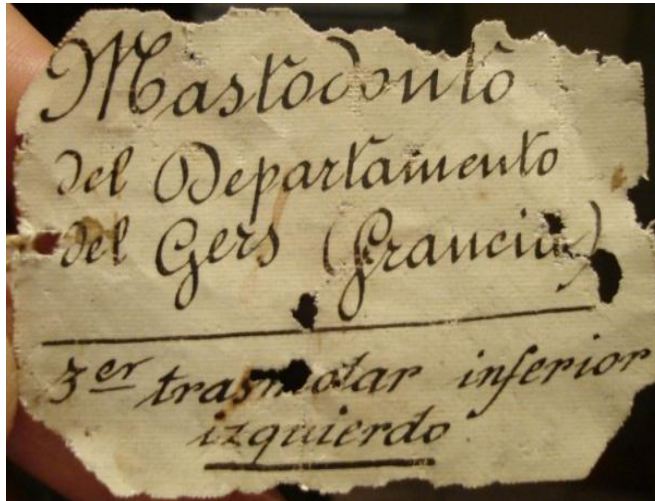 Mastodonto
del Departamento
del Gers (Francia)
3er trasmolar inferior
izquierdo.